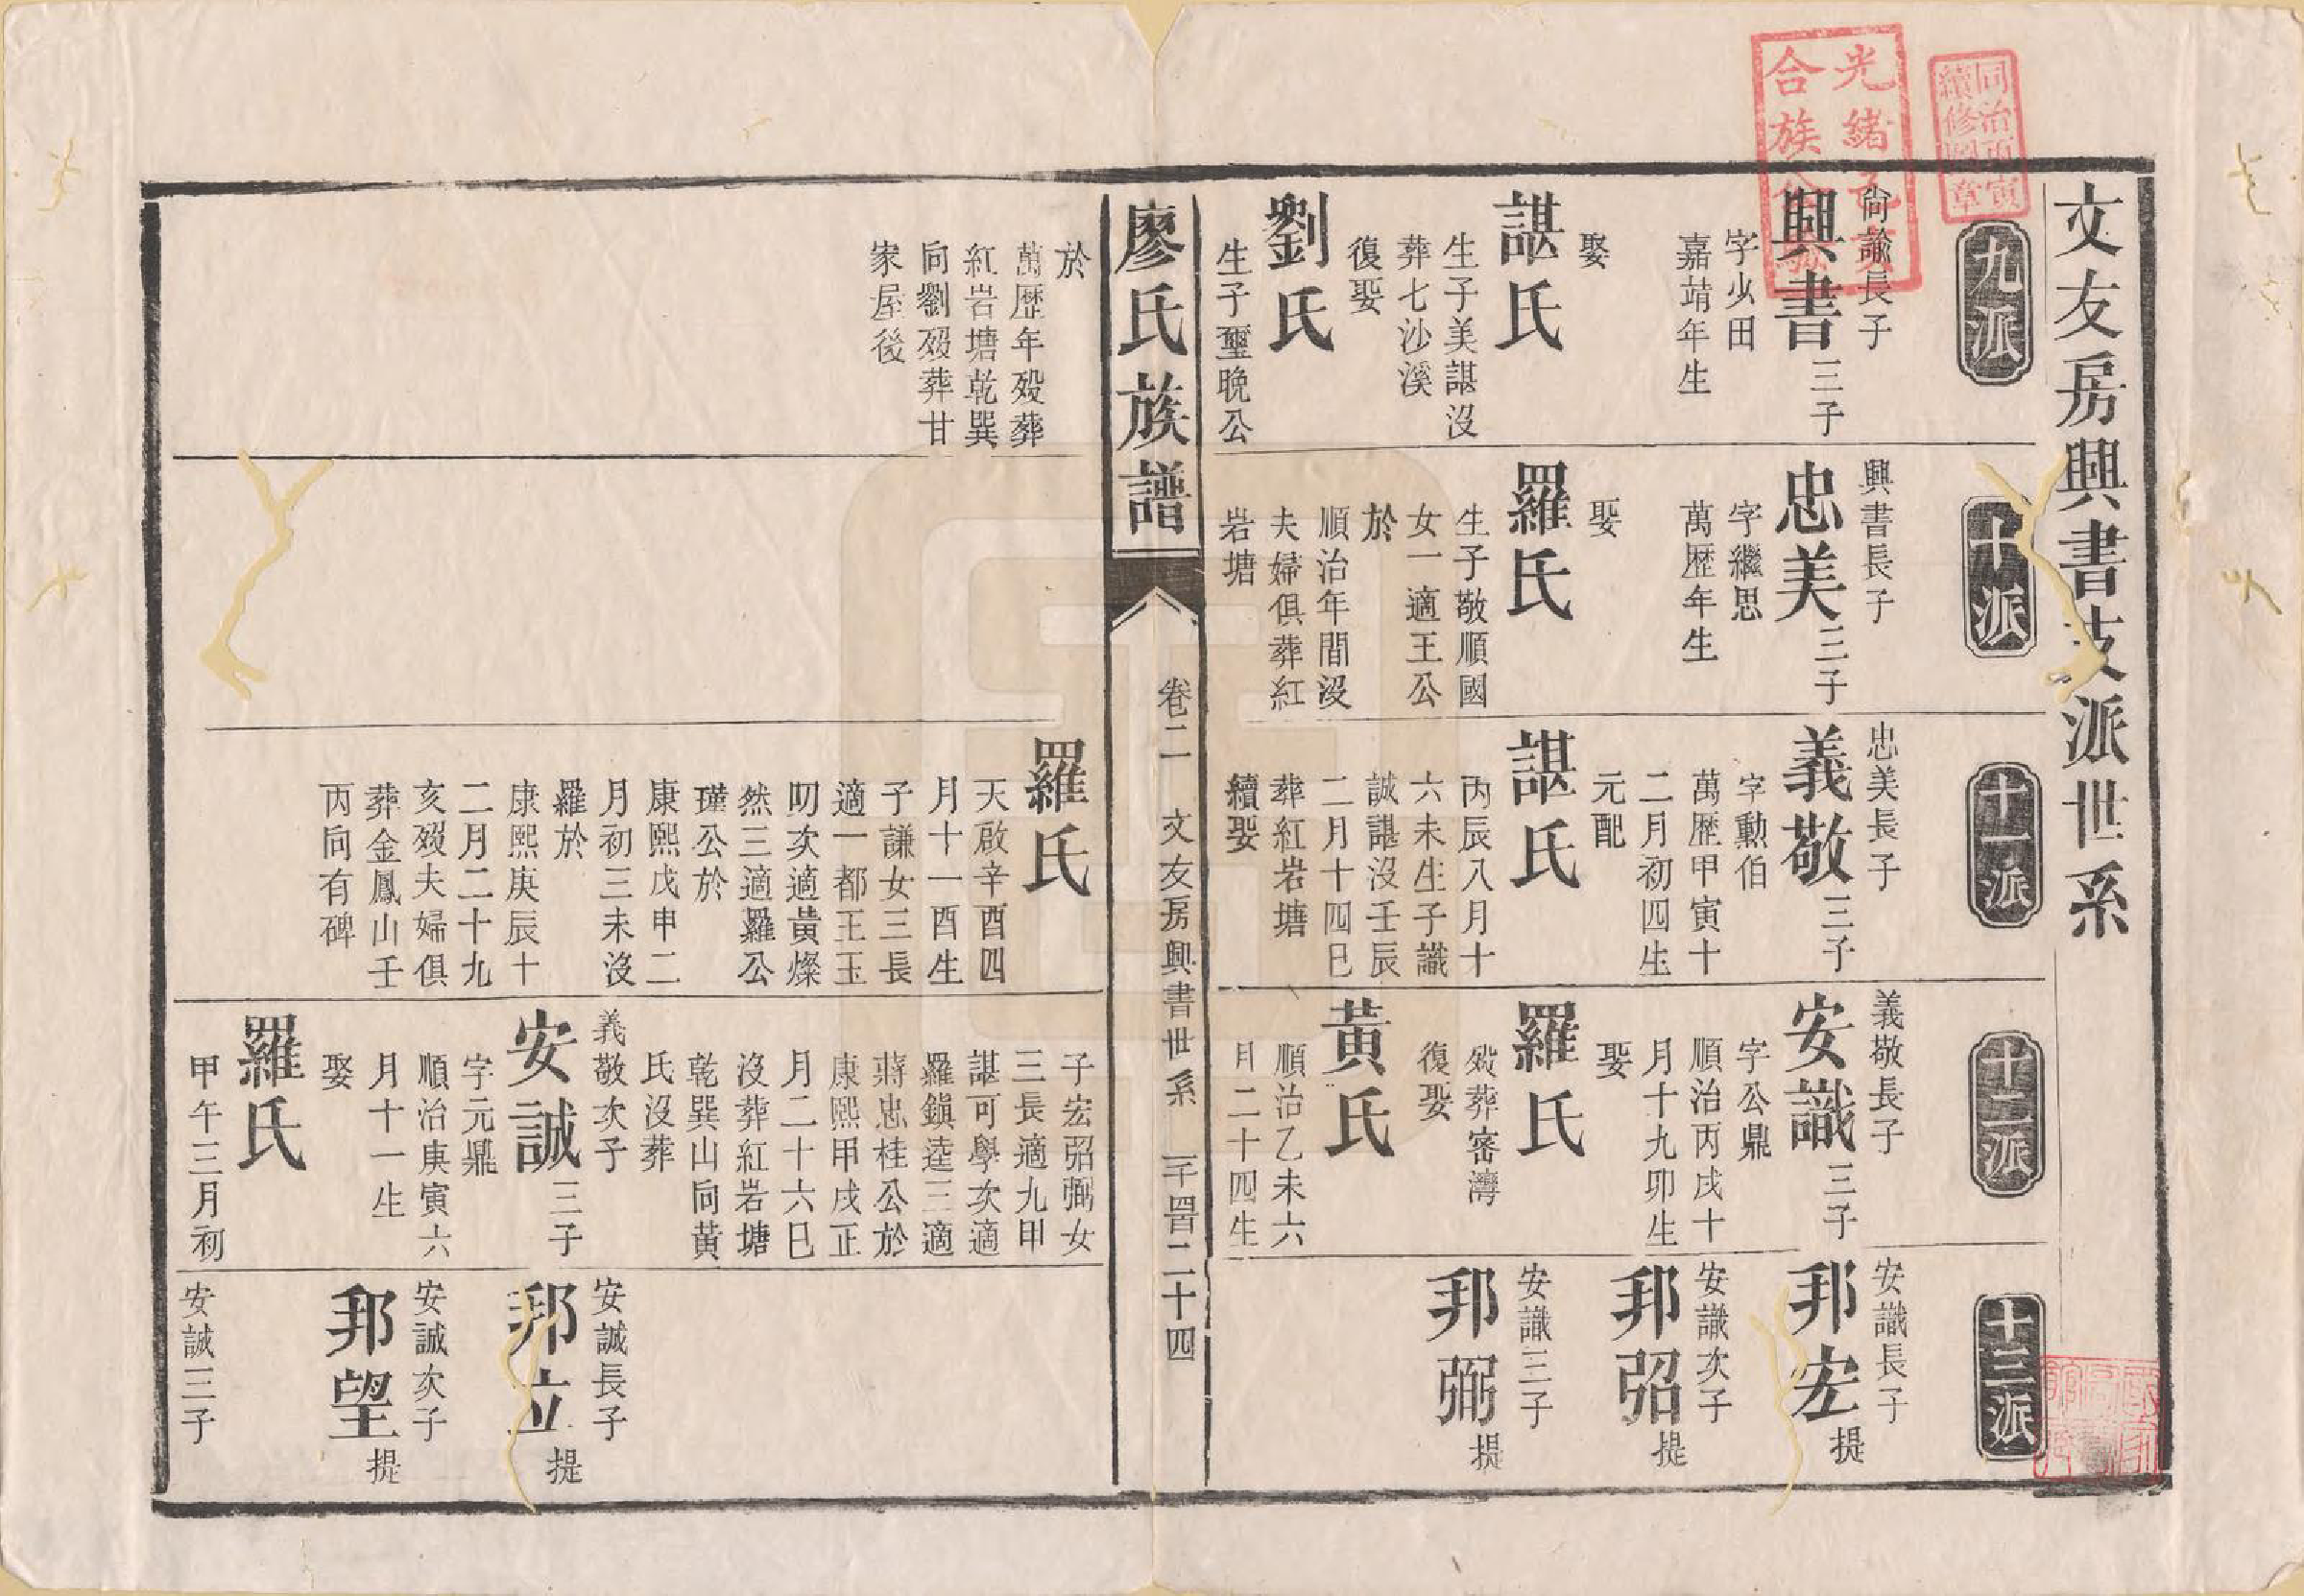 文友房興書支派世系
九派
尙諭長子
興書三子
字少田
嘉靖年生
娶
諶氏
生子美諶沒
葬七沙溪
復娶
劉氏
生子璽晚公
十派
興書長子
忠美三子
字繼思
萬歷年生
娶
羅氏
生子敬順國
女一適王公
於
順治年間沒
夫婦俱葬紅
岩塘
十一派
忠美長子
義敬三子
字勳伯
萬歷甲寅十
二月初四生
元配
諶氏
丙辰八月十
六未生子識
誠諶沒壬辰
二月十四巳
葬紅岩塘
續娶
十二派
義敬長子
安識三子
字公鼎
順治丙戌十
月十九卯生
娶
羅氏
歿葬密灣
復娶
黃氏
順治乙未六
月二十四生
十三派
安識長子
邦宏提
安識次子
邦弨提
安識三子
邦弼提
廖氏族譜
卷二
文友房興書世系
一千四百二十四
於
萬歷年歿葬
紅岩塘乾巽
向劉歿葬甘
家屋後
羅氏
天啟辛酉四
月十一酉生
子謙女三長
適一都王玉
叨次適黃燦
然三適羅公
瑾公於
康熙戊申二
月初三未沒
羅於
康熙庚辰十
二月二十九
亥歿夫婦俱
葬金鳳山壬
丙向有碑
子宏弨弼女
三長適九甲
諶可學次適
羅鎮逵三適
蔣忠桂公於
康熙甲戌正
月二十六巳
沒葬紅岩塘
乾巽山向黃
氏沒葬
義敬次子
安誠三子
字元鼎
順治庚寅六
月十一生
娶
羅氏
甲午三月初
安誠長子
邦立提
安誠次子
邦望提
安誠三子